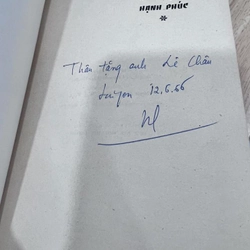 HẠNH PHÚC
Thân tặng anh Lê Chân
Saigon 12.6.66